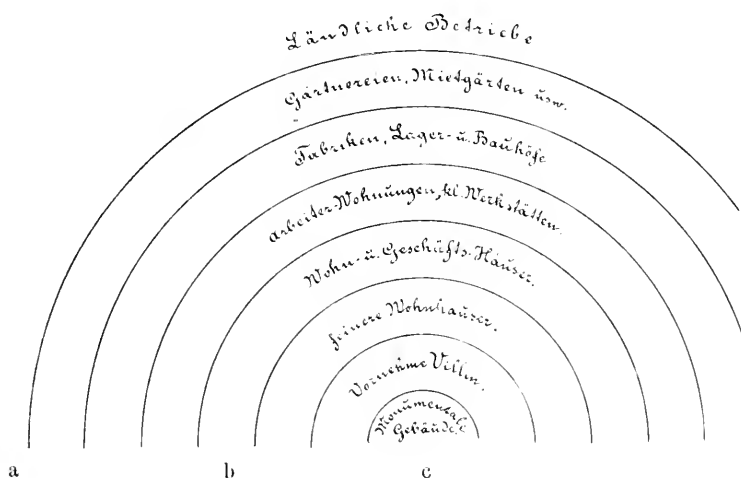 Ländliche Betriebe
Gärtnereien, Mietgärten usw.
Fabriken, Lager- u. Bauhöfe
Arbeiter-Wohnungen, kl. Werkstätten.
Wohn- u. Geschäfts-Häuser.
feinere Wohnhäuser.
Vornehme Villen.
Monumentale
Gebäude.
a b c